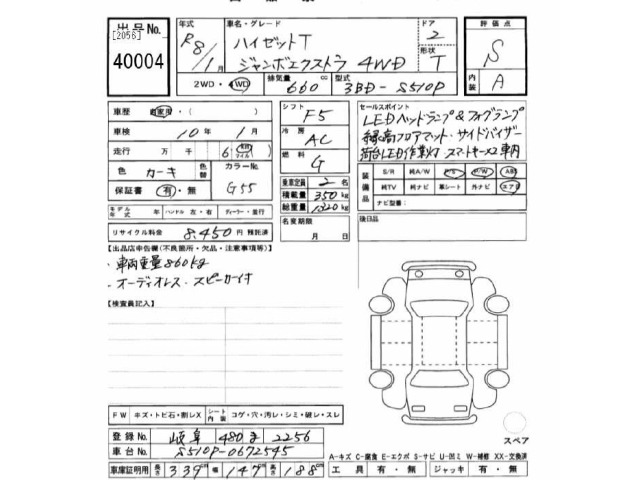 出品No.
[2056]
40004
年式 R8/1月
車名・グレード
ハイゼットT
ジャンボエクストラ 4WD
ドア 2
形状 T
評価点 S
内装 A
2WD・4WD 排気量 660 cc 型式 3BD-S510P
車歴 自家用・( )
車検 10年 1月
走行 万 千 6 km マイル
色 カーキ 色替 カラーNo. G55
保証書 有・無
モデル年式 年 ハンドル 左・右 ディーラー・並行
リサイクル料金 8,450円 預託済
シフト F5
冷房 AC
燃料 G
乗車定員 2名
積載量 350kg
総重量 1320kg
名変期限
月 日
セールスポイント
LEDヘッドランプ&フォグランプ
縁高フロアマット・サイドバイザー
荷台LED作業灯・スマートキー×2 車内
装備品 S/R 純A/W P/S P/W ABS
純TV 純ナビ 革シート 外ナビ エアB
ナビ型番:
後日品
【出品店申告欄(不良箇所・欠品・注意事項等)】
・車両重量860kg
・オーディオレス・スピーカー付
【検査員記入】
FW キズ・トビ石・割レX シート内装 コゲ・穴・汚レ・シミ・破レ・スレ
登録No. 岐阜 480 ま 2256
車台No. S510P-0672545
車庫証明用 長さ 339cm 幅 147cm 高さ 188cm
スペア
A-キズ C-腐食 E-エクボ S-サビ U-凹ミ W-補修 XX-交換済
工具 有・無 ジャッキ 有・無